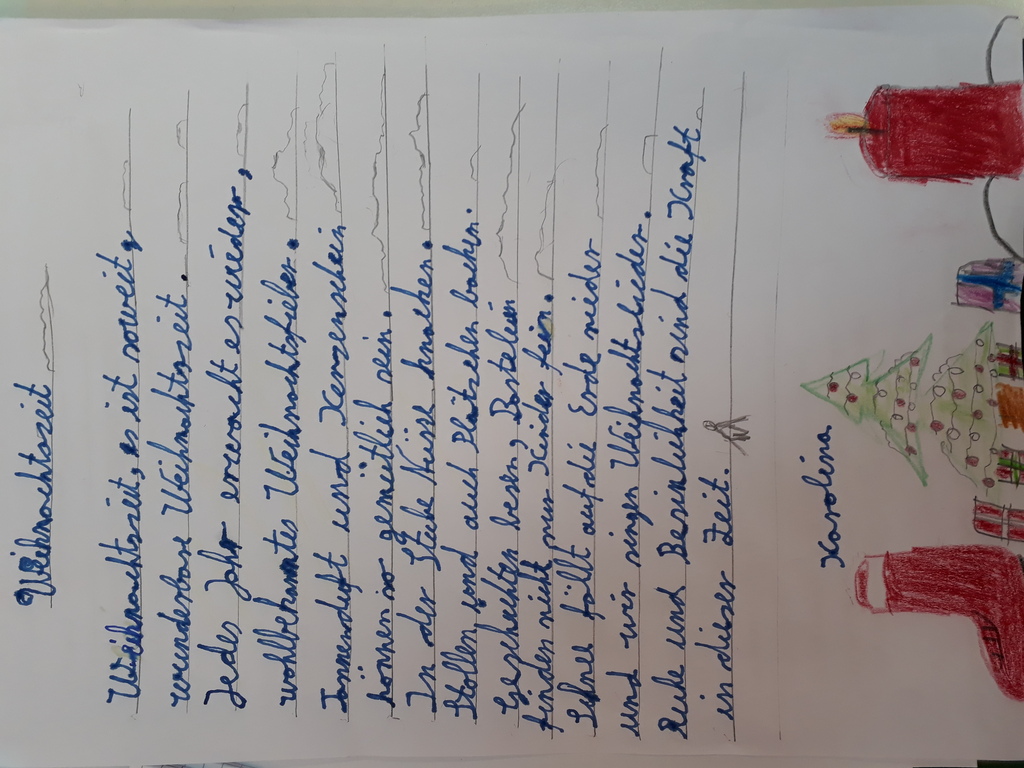 Weihnachtszeit
Weihnachtszeit, es ist soweit,
wunderbare Weihnachtszeit.
Jedes Jahr erwacht es wieder,
wohlbekanntes Weihnachtsfieber.
Tannenduft und Kerzenschein
können so gemütlich sein.
In der Stube Nüsse knacken.
Stollen und auch Plätzchen backen.
Geschichten lesen, Bastelein
finden nicht nur Kinder fein.
Schnee fällt auf die Erde nieder
und wir singen Weihnachtslieder.
Ruhe und Besinlichkeit sind die Kraft
in dieser Zeit.
Karolina